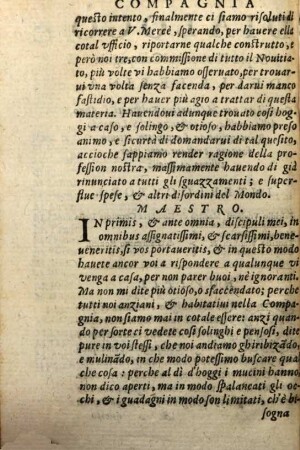 COMPAGNIA
questo intento, finalmente ci siamo risoluti di
ricorrere a V. Mercè, sperando, per hauere ella
cotal vfficio, riportarne qualche construtto, e
però noi tre, con commissione di tutto il Nouitiato,
più volte vi habbiamo osseruato, per trouarui
vna volta senza facenda, per darui manco
fastidio, e per hauer più agio a trattar di questa
materia. Hauendoui adunque trouato così hoggi
a caso, e solingo, & otioso, habbiamo preso
animo, e sicurtà di domandarui di tal quesito,
accioche sappiamo render ragione della professione
nostra, massimamente hauendo di già
rinunciato a tutti gli sguazzamenti; e superflue
spese, & altri disordini del Mondo.
MAESTRO.
IN primis, & ante omnia, discipuli mei, in
omnibus assignatissimi, & scarsissimi, beneueneritis,
si vos portaueritis, & in questo modo
hauete ancor voi a rispondere a qualunque vi
venga a casa, per non parer buoi, nè ignoranti.
Ma non mi dite più otioso, o sfaccendato; perche
tutti noi anziani, & habituati nella Compagnia,
non siamo mai in cotale essere: anzi quando
per sorte ci vedete così solinghi e pensosi, dite
pure in voi stessi, che noi andiamo ghiribizādo,
e mulinādo, in che modo potessimo buscare qualche
cosa: perche al dì d'hoggi i mucini hanno,
non dico aperti, ma in modo spalancati gli occhi,
& i guadagni in modo son limitati, ch'è bi-
sogna